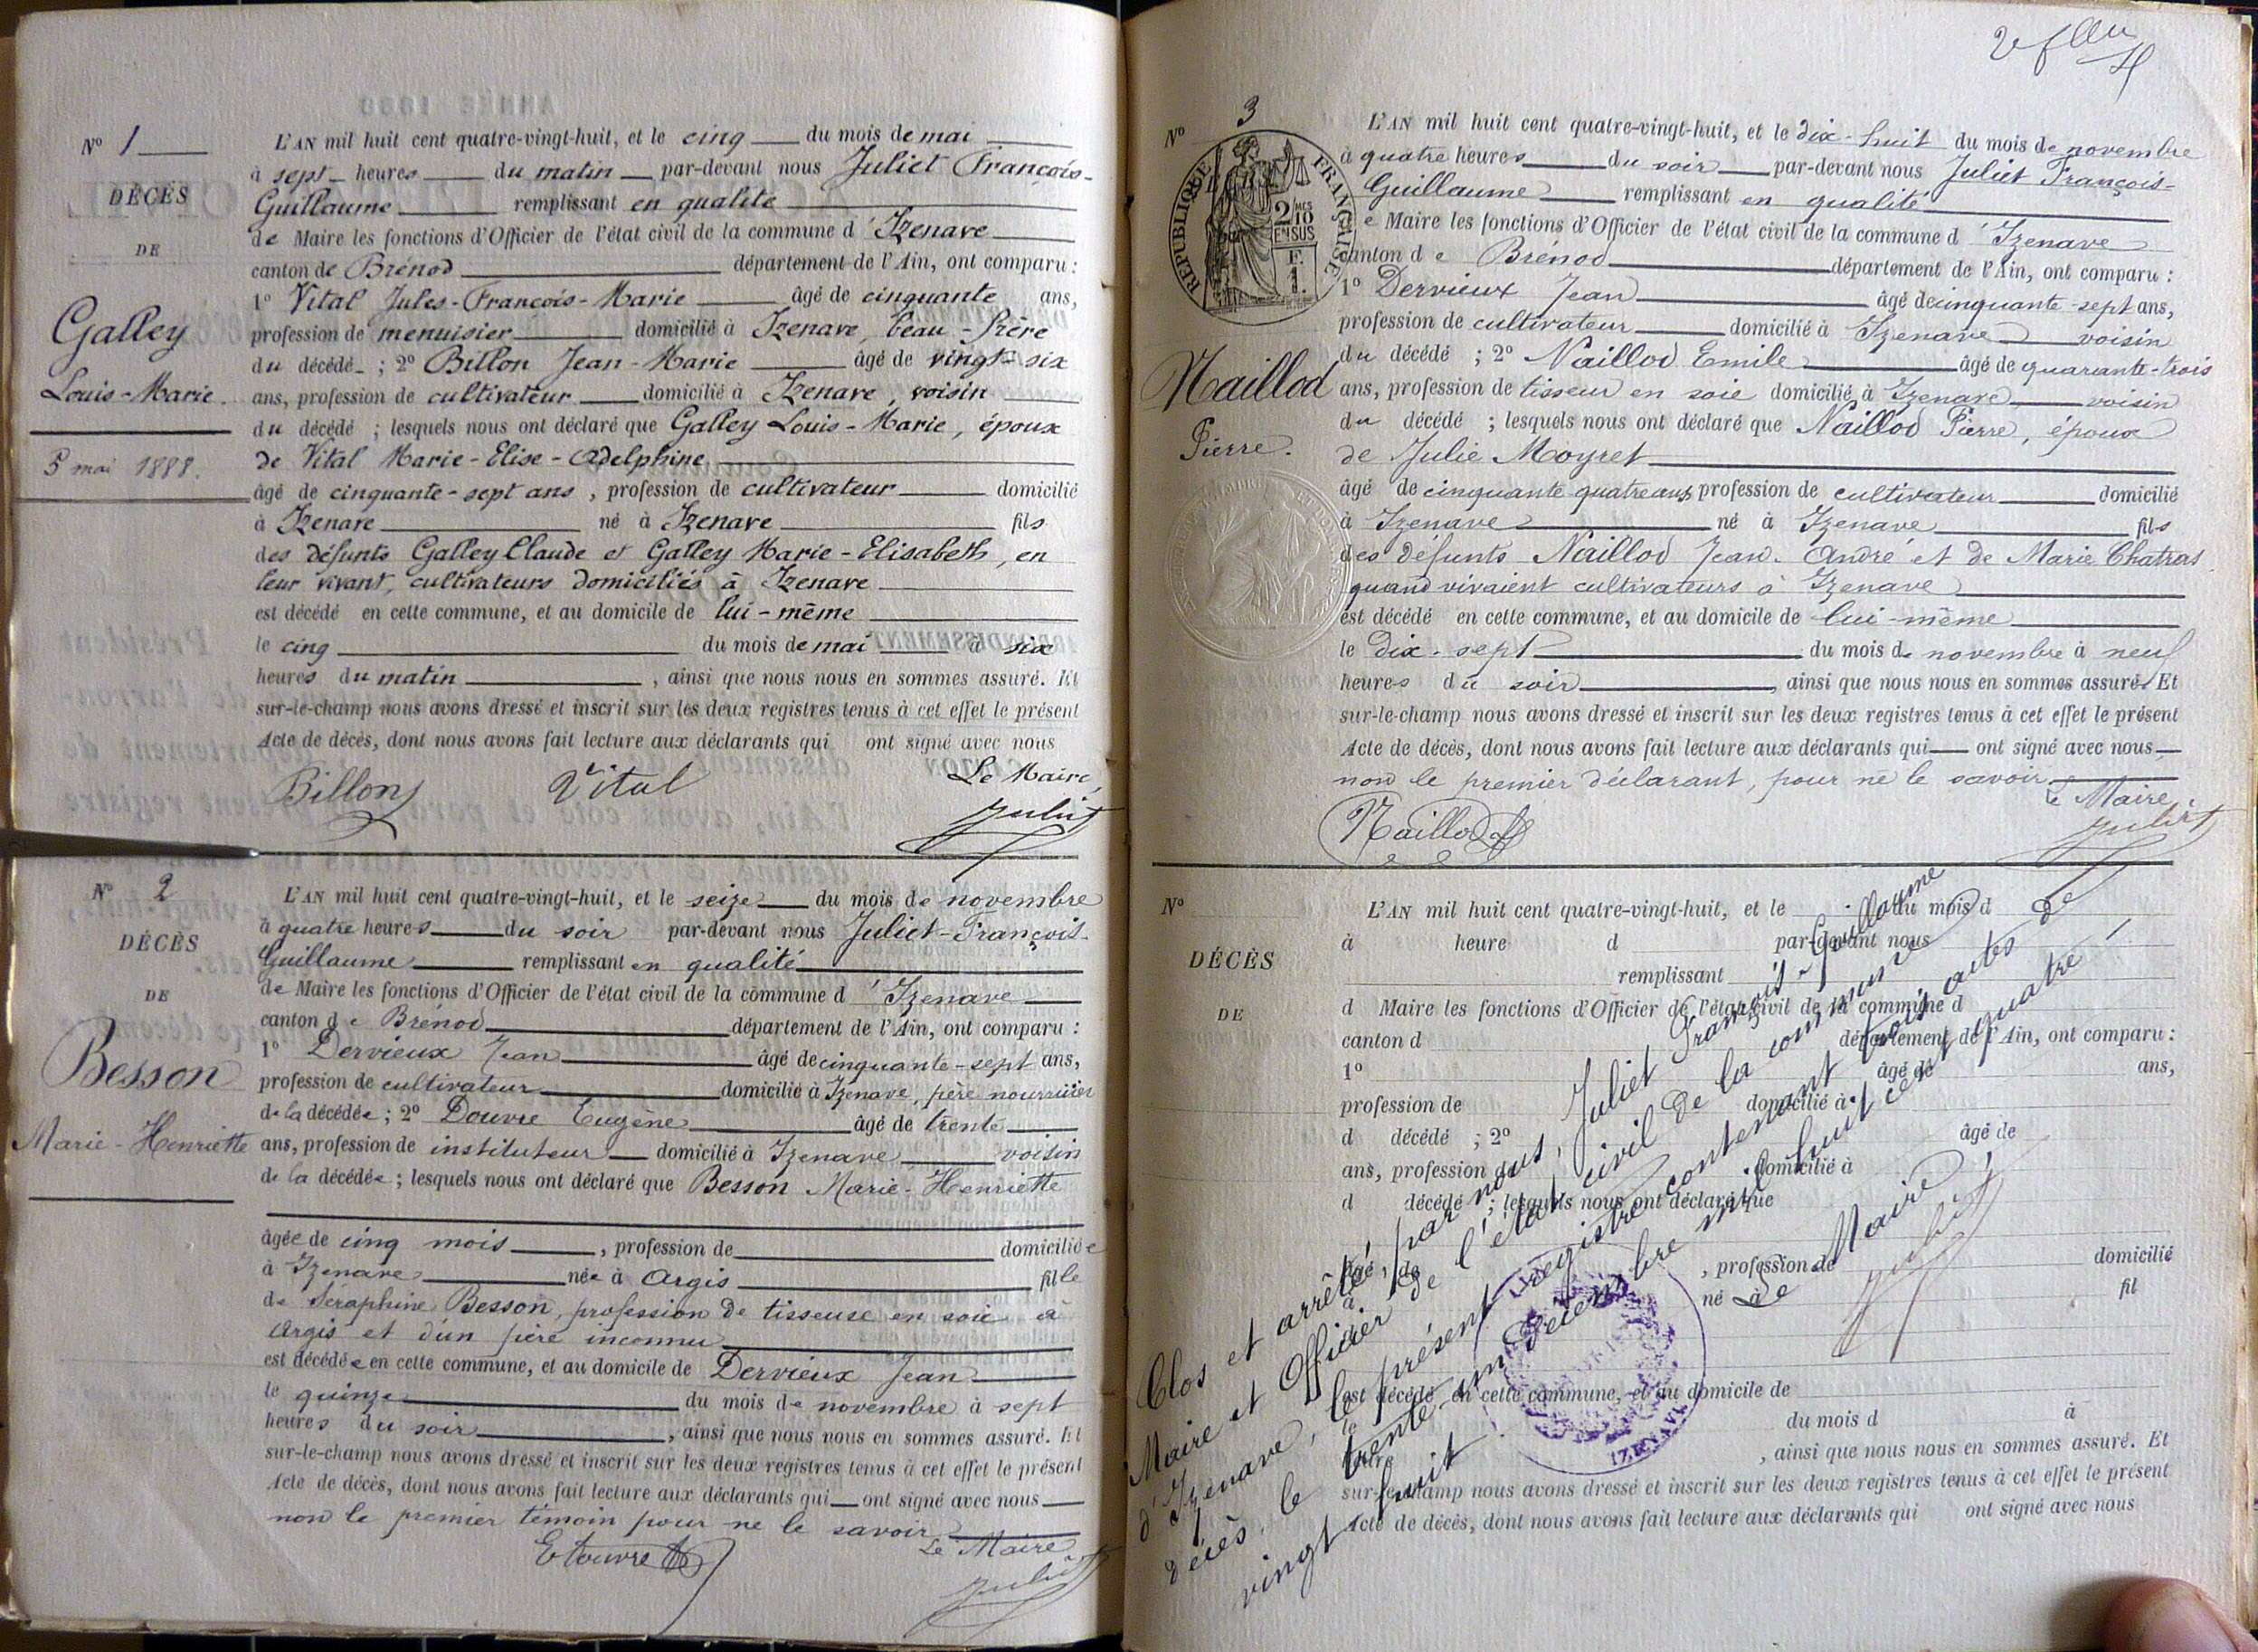 N° 1
DÉCÈS
DE
Galley
Louis-Marie.
5 mai 1888.
L'AN mil huit cent quatre-vingt-huit, et le cinq du mois de mai
à sept heures du matin par-devant nous Juliet François-
Guillaume remplissant en qualité
de Maire les fonctions d'Officier de l'état civil de la commune d'Izenave
canton de Brénod département de l'Ain, ont comparu :
1° Vital Jules-François-Marie âgé de cinquante ans,
profession de menuisier domicilié à Izenave, beau-frère
du décédé ; 2° Billon Jean-Marie âgé de vingt-six
ans, profession de cultivateur domicilié à Izenave, voisin
du décédé ; lesquels nous ont déclaré que Galley Louis-Marie, époux
de Vital Marie-Elise-Adelphine
âgé de cinquante-sept ans, profession de cultivateur domicilié
à Izenave né à Izenave fils
des défunts Galley Claude et Galley Marie-Elisabeth, en
leur vivant, cultivateurs domiciliés à Izenave
est décédé en cette commune, et au domicile de lui-même
le cinq du mois de mai à six
heures du matin, ainsi que nous nous en sommes assuré. Et
sur-le-champ nous avons dressé et inscrit sur les deux registres tenus à cet effet le présent
Acte de décès, dont nous avons fait lecture aux déclarants qui ont signé avec nous
Billon Vital Le Maire,
Juliet
N° 2
DÉCÈS
DE
Besson
Marie-Henriette
L'AN mil huit cent quatre-vingt-huit, et le seize du mois de novembre
à quatre heures du soir par-devant nous Juliet-François-
Guillaume remplissant en qualité
de Maire les fonctions d'Officier de l'état civil de la commune d'Izenave
canton de Brénod département de l'Ain, ont comparu :
1° Dervieux Jean âgé de cinquante-sept ans,
profession de cultivateur domicilié à Izenave, père nourricier
de la décédée ; 2° Douvre Eugène âgé de trente
ans, profession de instituteur domicilié à Izenave voisin
de la décédée ; lesquels nous ont déclaré que Besson Marie-Henriette
âgée de cinq mois, profession de domiciliée
à Izenave née à Argis fille
de Séraphine Besson, profession de tisseuse en soie à
Argis et d'un père inconnu
est décédée en cette commune, et au domicile de Dervieux Jean
le quinze du mois de novembre à sept
heures du soir, ainsi que nous nous en sommes assuré. Et
sur-le-champ nous avons dressé et inscrit sur les deux registres tenus à cet effet le présent
Acte de décès, dont nous avons fait lecture aux déclarants qui ont signé avec nous
non le premier témoin pour ne le savoir
Le Maire
Juliet
N° 3
RÉPUBLIQUE FRANÇAISE
2 10MES
EN SUS
F.
1.
Naillod
Pierre.
L'AN mil huit cent quatre-vingt-huit, et le dix-huit du mois de novembre
à quatre heures du soir par-devant nous Juliet François-
Guillaume remplissant en qualité
de Maire les fonctions d'Officier de l'état civil de la commune d'Izenave
canton de Brénod département de l'Ain, ont comparu :
1° Dervieux Jean âgé de cinquante-sept ans,
profession de cultivateur domicilié à Izenave voisin
du décédé ; 2° Naillod Emile âgé de quarante-trois
ans, profession de tisseur en soie domicilié à Izenave voisin
du décédé ; lesquels nous ont déclaré que Naillod Pierre, époux
de Julie Moyret
âgé de cinquante quatre ans, profession de cultivateur domicilié
à Izenave né à Izenave fils
des défunts Naillod Jean-André et de Marie Chatras
quand vivaient cultivateurs à Izenave
est décédé en cette commune, et au domicile de lui-même
le dix-sept du mois de novembre à neuf
heures du soir, ainsi que nous nous en sommes assuré. Et
sur-le-champ nous avons dressé et inscrit sur les deux registres tenus à cet effet le présent
Acte de décès, dont nous avons fait lecture aux déclarants qui ont signé avec nous
non le premier déclarant, pour ne le savoir
Le Maire,
Naillod Juliet
N°
DÉCÈS
DE
L'AN mil huit cent quatre-vingt-huit, et le du mois d
à heure d par-devant nous
remplissant
d Maire les fonctions d'Officier de l'état civil de la commune d
canton d département de l'Ain, ont comparu :
1° âgé de ans,
profession de domicilié à
d décédé ; 2° âgé de
ans, profession de domicilié à
d décédé ; lesquels nous ont déclaré que
âgé de , profession de domicilié
à né à fil
est décédé en cette commune, et au domicile de
le du mois d à
heure , ainsi que nous nous en sommes assuré. Et
sur-le-champ nous avons dressé et inscrit sur les deux registres tenus à cet effet le présent
Acte de décès, dont nous avons fait lecture aux déclarants qui ont signé avec nous
Clos et arrêté, par nous, Juliet François-Guillaume
Maire et Officier de l'état civil de la commune
d'Izenave, le présent registre contenant trois actes de
décès, le trente-un décembre mil huit cent quatre
vingt huit.
Le Maire,
Juliet
IZENAVE